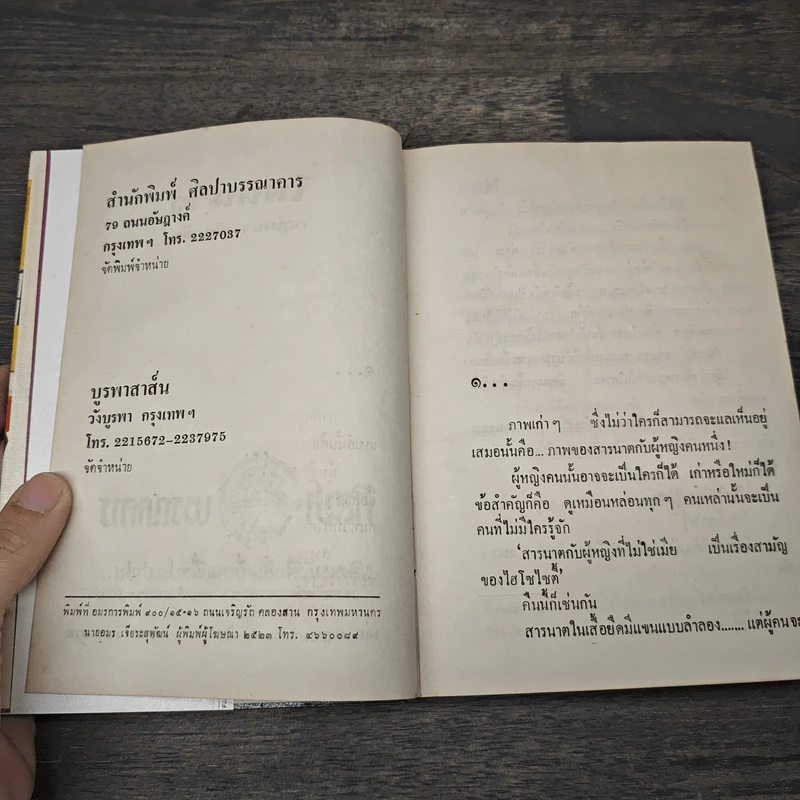 สำนักพิมพ์ ศิลปาบรรณาคาร
79 ถนนอัษฎางค์
กรุงเทพ ฯ โทร. 2227037
จัดพิมพ์จำหน่าย
บูรพาสาส์น
วังบูรพา กรุงเทพ ฯ
โทร. 2215672–2237975
จัดจำหน่าย
พิมพ์ที่ อมรการพิมพ์ ๙๐๐/๑๕-๑๖ ถนนเจริญรัถ คลองสาน กรุงเทพมหานคร
นายอมร เจียระสุพัฒน์ ผู้พิมพ์ผู้โฆษณา ๒๕๒๓ โทร. ๔๖๖๐๐๘๙
๑...
ภาพเก่า ๆ ซึ่งไม่ว่าใครก็สามารถจะแลเห็นอยู่
เสมอนั้นคือ... ภาพของสารนาตกับผู้หญิงคนหนึ่ง !
ผู้หญิงคนนั้นอาจจะเป็นใครก็ได้ เก่าหรือใหม่ก็ได้
ข้อสำคัญก็คือ ดูเหมือนหล่อนทุก ๆ คนเหล่านั้นจะเป็น
คนที่ไม่มีใครรู้จัก
‘สารนาตกับผู้หญิงที่ไม่ใช่เมีย เป็นเรื่องสามัญ
ของไฮโซไซตี้’
คืนนี้ก็เช่นกัน
สารนาตในเสื้อยืดมีแขนแบบลำลอง....... แต่ผู้คนจะ